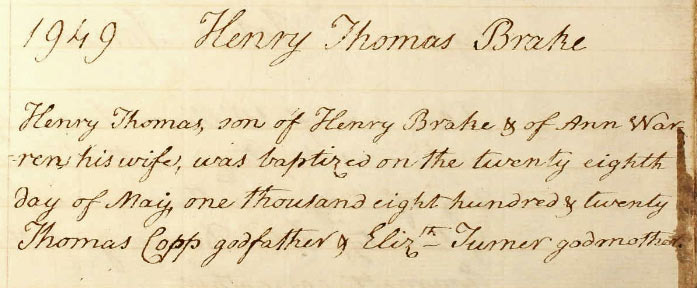 1949 Henry Thomas Brake
Henry Thomas, son of Henry Brake & of Ann War-
-ren, his wife, was baptized on the twenty eighth
day of May, one thousand eight hundred & twenty
Thomas Copp godfather & Eliz.th Turner godmother.